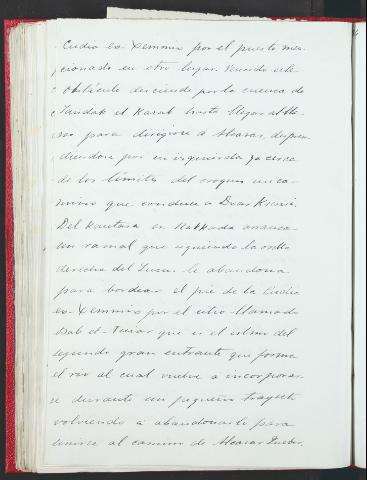 Cudia es-Xemmia por el puerto men-
cionado en otro lugar. Vencido este
obstáculo desciende por la cuenca de
Jandak el Karab hasta llegar al Me-
para dirigirse á Alcazar, despren-
diendose por su izquierda ya cerca
de los límites del croquis un ca-
mino que conduce a Duar Ksuri.
Del Kantara er Rakkada arranca
un ramal que siguiendo la orilla
derecha del Lucus le abandona
para bordear el pié de la Cudia
es-Xemmia por el sitio llamado
Bab et- que es el istmo del
segundo gran entrante que forma
el rio al cual vuelve a incorporar-
se durante un pequeño trayecto
volviendo á abandonarlo para
unirse al camino de Alcazar